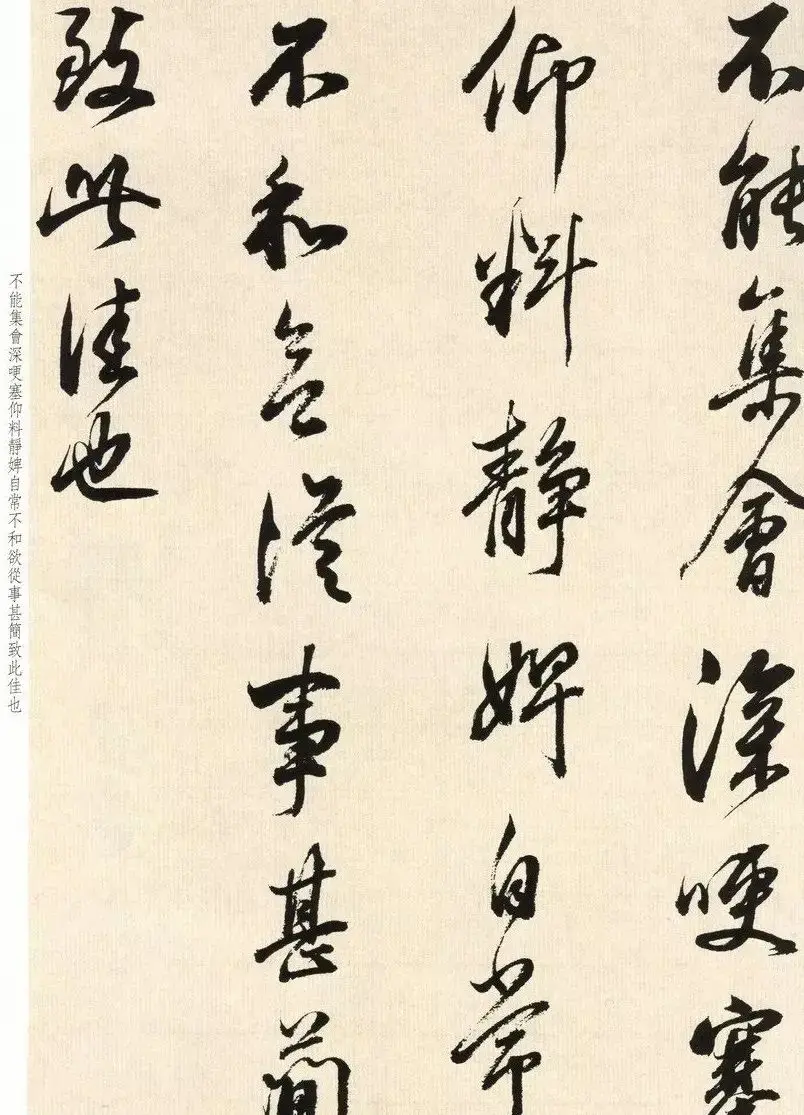 不能集會深哽塞
仰料靜婢自常
不和欲從事甚簡
致此佳也
不能集會深哽塞仰料靜婢自常不和欲從事甚簡致此佳也